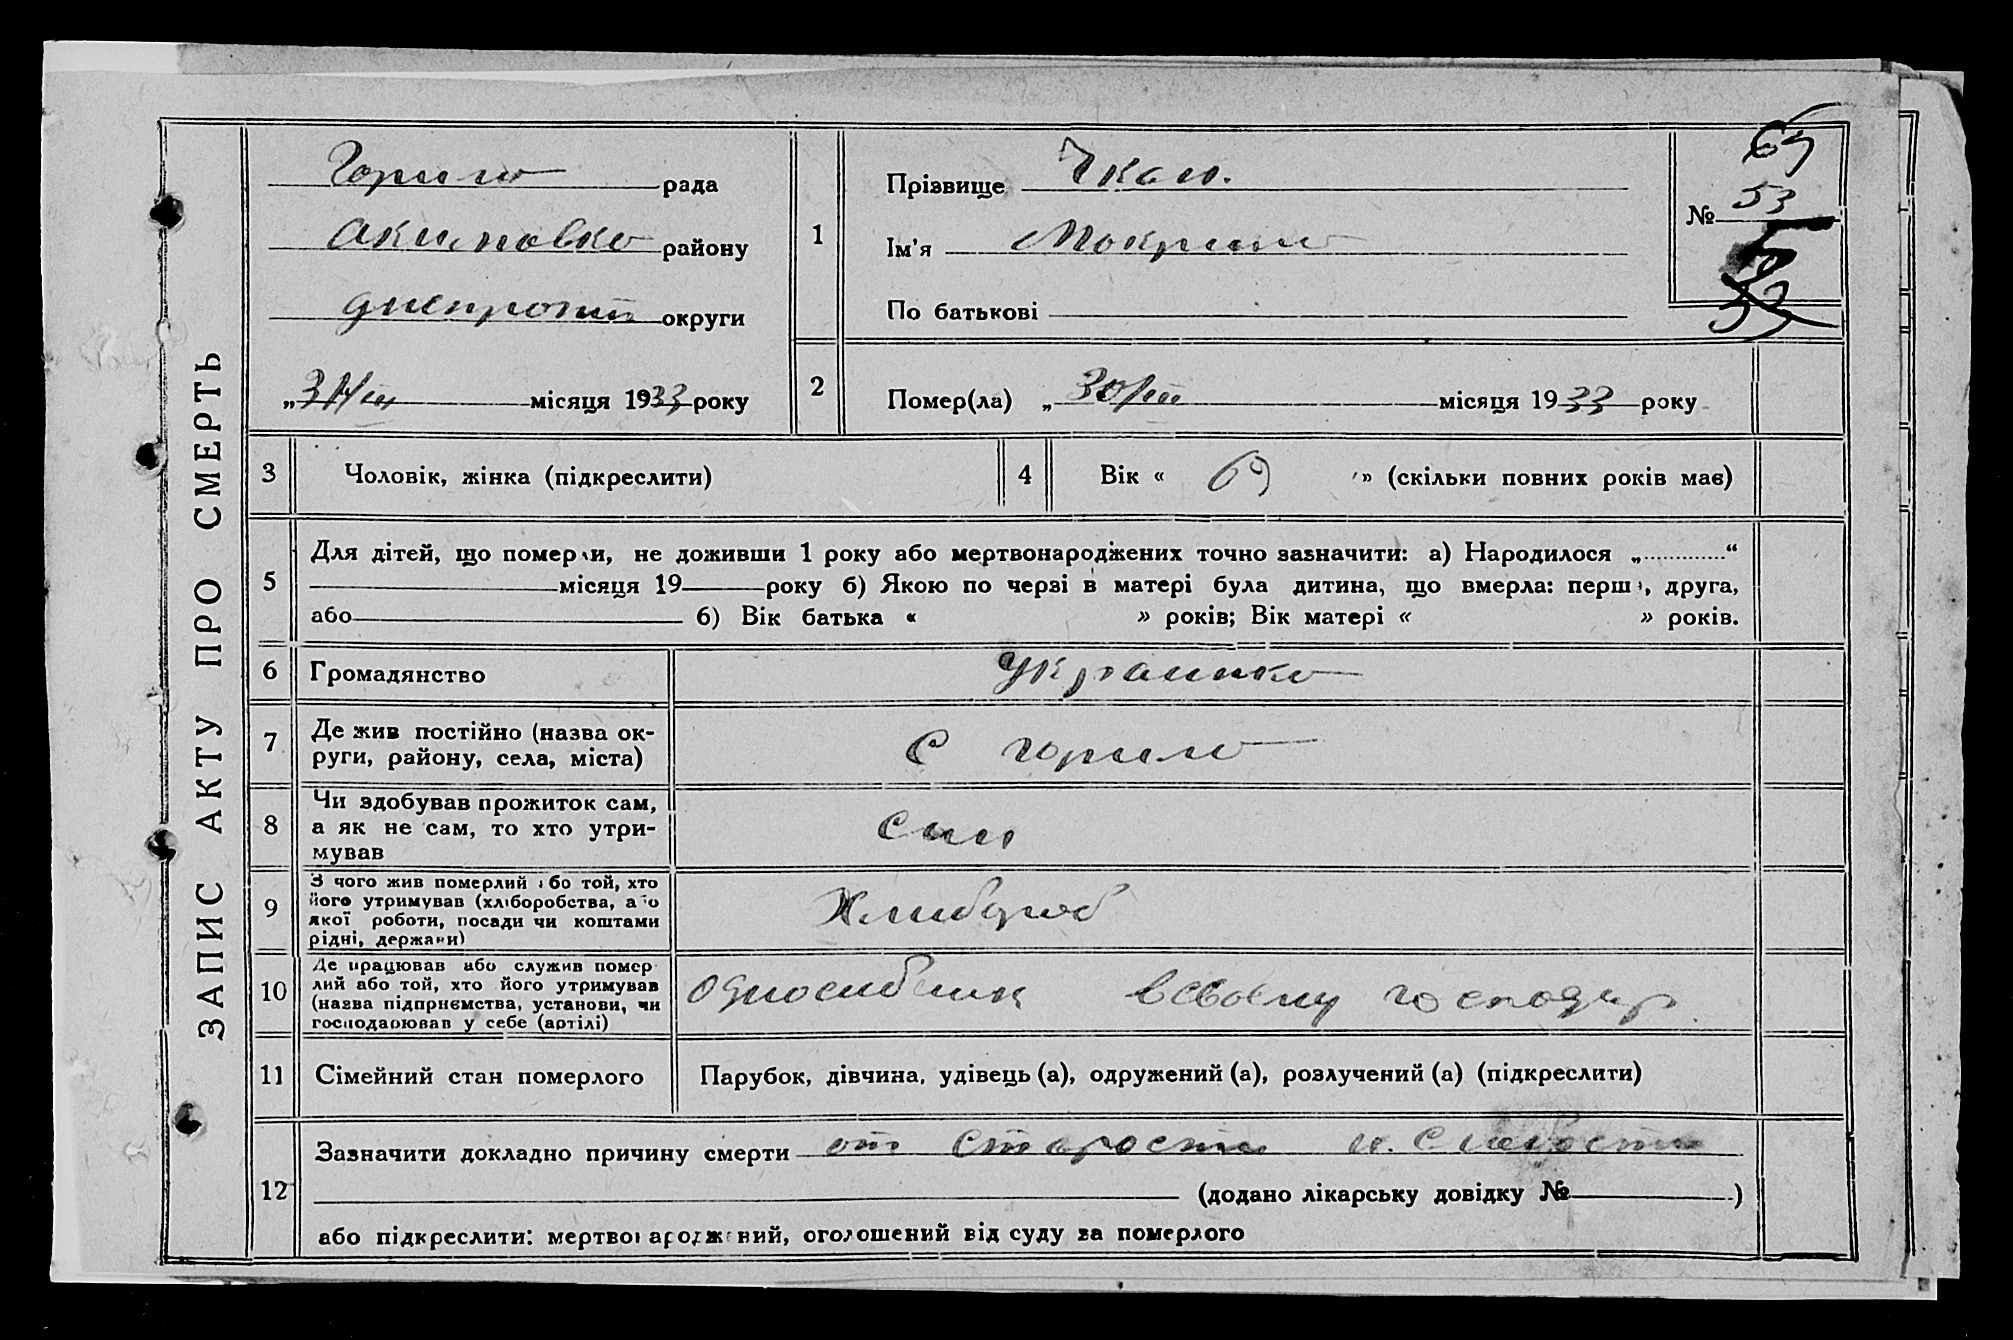 ЗАПИС АКТУ ПРО СМЕРТЬ
рада
району
округи
„31/III місяця 1933 року
1
Прізвище Чкан.
Ім'я
По батькові
№ 53
2
Помер(ла) „30/III місяця 1933 року
3
Чоловік, жінка (підкреслити)
4
Вік « 69 » (скільки повних років має)
5
Для дітей, що померли, не доживши 1 року або мертвонароджених точно зазначити: а) Народилося „.............“
місяця 19 року б) Якою по черзі в матері була дитина, що вмерла: перша, друга,
або б) Вік батька « » років; Вік матері « » років.
6
Громадянство
Украинка
7
Де жив постійно (назва ок-
руги, району, села, міста)
С
8
Чи здобував прожиток сам,
а як не сам, то хто утри-
мував
син
9
З чого жив померлий або той, хто
його утримував (хліборобства, або
якої роботи, посади чи коштами
рідні, держави)
Хлибороб
10
Де працював або служив помер
лий або той, хто його утримував
(назва підприємства, установи, чи
господарював у себе (артілі)
всвоему господар
11
Сімейний стан померлого
Парубок, дівчина, удівець (а), одружений (а), розлучений (а) (підкреслити)
12
Зазначити докладно причину смерти от старости и. слабости
(додано лікарську довідку № )
або підкреслити: мертвонароджений, оголошений від суду за померлого